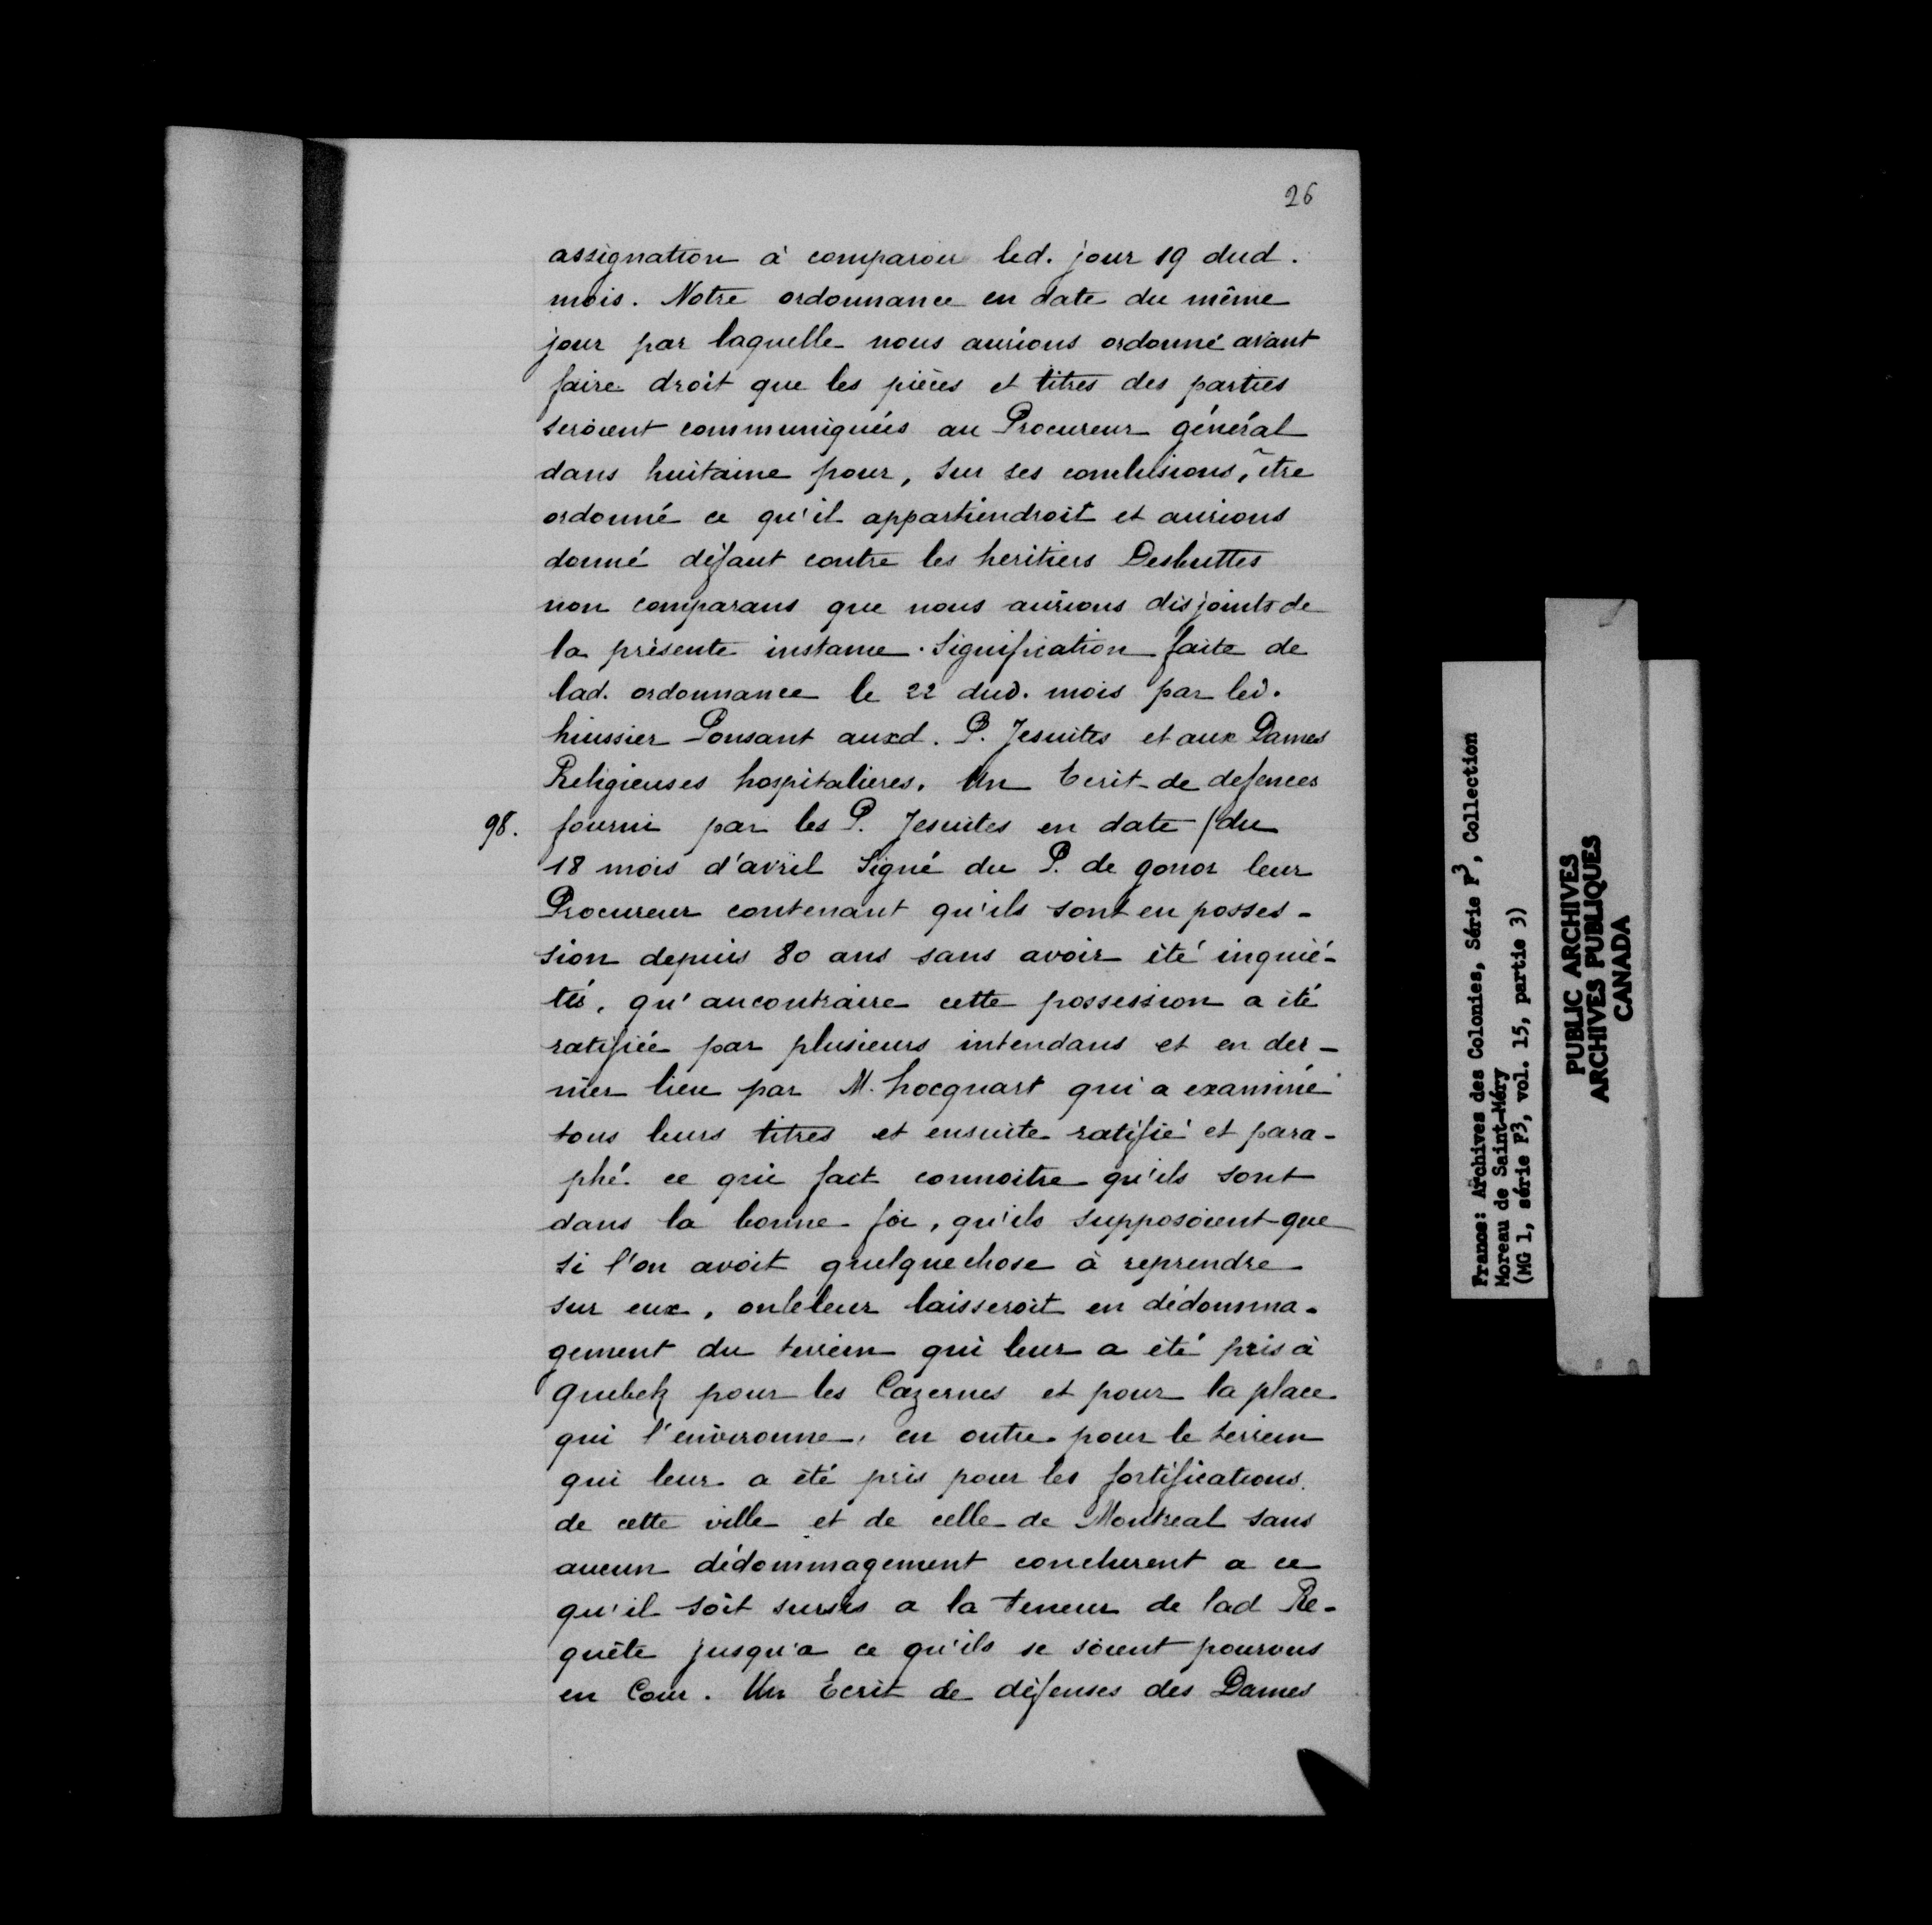 26
assignation à comparoir led. jour 19 dud.
mois. Notre ordonnance en date du même
jour par laquelle nous aurions ordonné avant
faire droit que les pièces et titres des parties
seroient communiquées au Procureur général
dans huitaine pour, sur ses conclusions, être
ordonné ce qu'il appartiendroit et aurions
donné défaut contre les heritiers Desbuttes
non comparans que nous aurions disjoints de
la présente instance. Signification faite de
lad. ordonnance le 22 dud. mois par led.
huissier Ponsant auxd. P. Jesuites et aux Dames
Religieuses hospitalieres. Un Ecrit de defences
98. fourni par les P. Jesuites en date /du
18 mois d'avril Signé du P. de gonor leur
Procureur contenant qu'ils sont en posses-
sion depuis 80 ans sans avoir été inquié-
tés, qu'aucontraire cette possession a été
ratifiée par plusieurs intendans et en der-
nier lieu par M. hocquart qui a examiné
tous leurs titres et ensuite ratifié et para-
phé. ce qui fait connoitre qu'ils sont
dans la bonne foi, qu'ils supposoient que
si l'on avoit quelquechose à reprendre
sur eux, onleleur laisseroit en dédomma-
gement du terrein qui leur a été pris à
quebek pour les Cazernes et pour la place
qui l'environne, en outre pour le terrein
qui leur a été pris pour les fortifications
de cette ville et de celle de Montreal sans
aucun dédommagement conclurent a ce
qu'il soit sursis a la teneur de lad Re-
quête jusqu'a ce qu'ils se soient pourvus
en Cour. Un Ecrit de défenses des Dames
France: Archives des Colonies, Série F3, Collection
Moreau de Saint-Méry
(MG 1, série F3, vol. 15, partie 3)
PUBLIC ARCHIVES
ARCHIVES PUBLIQUES
CANADA